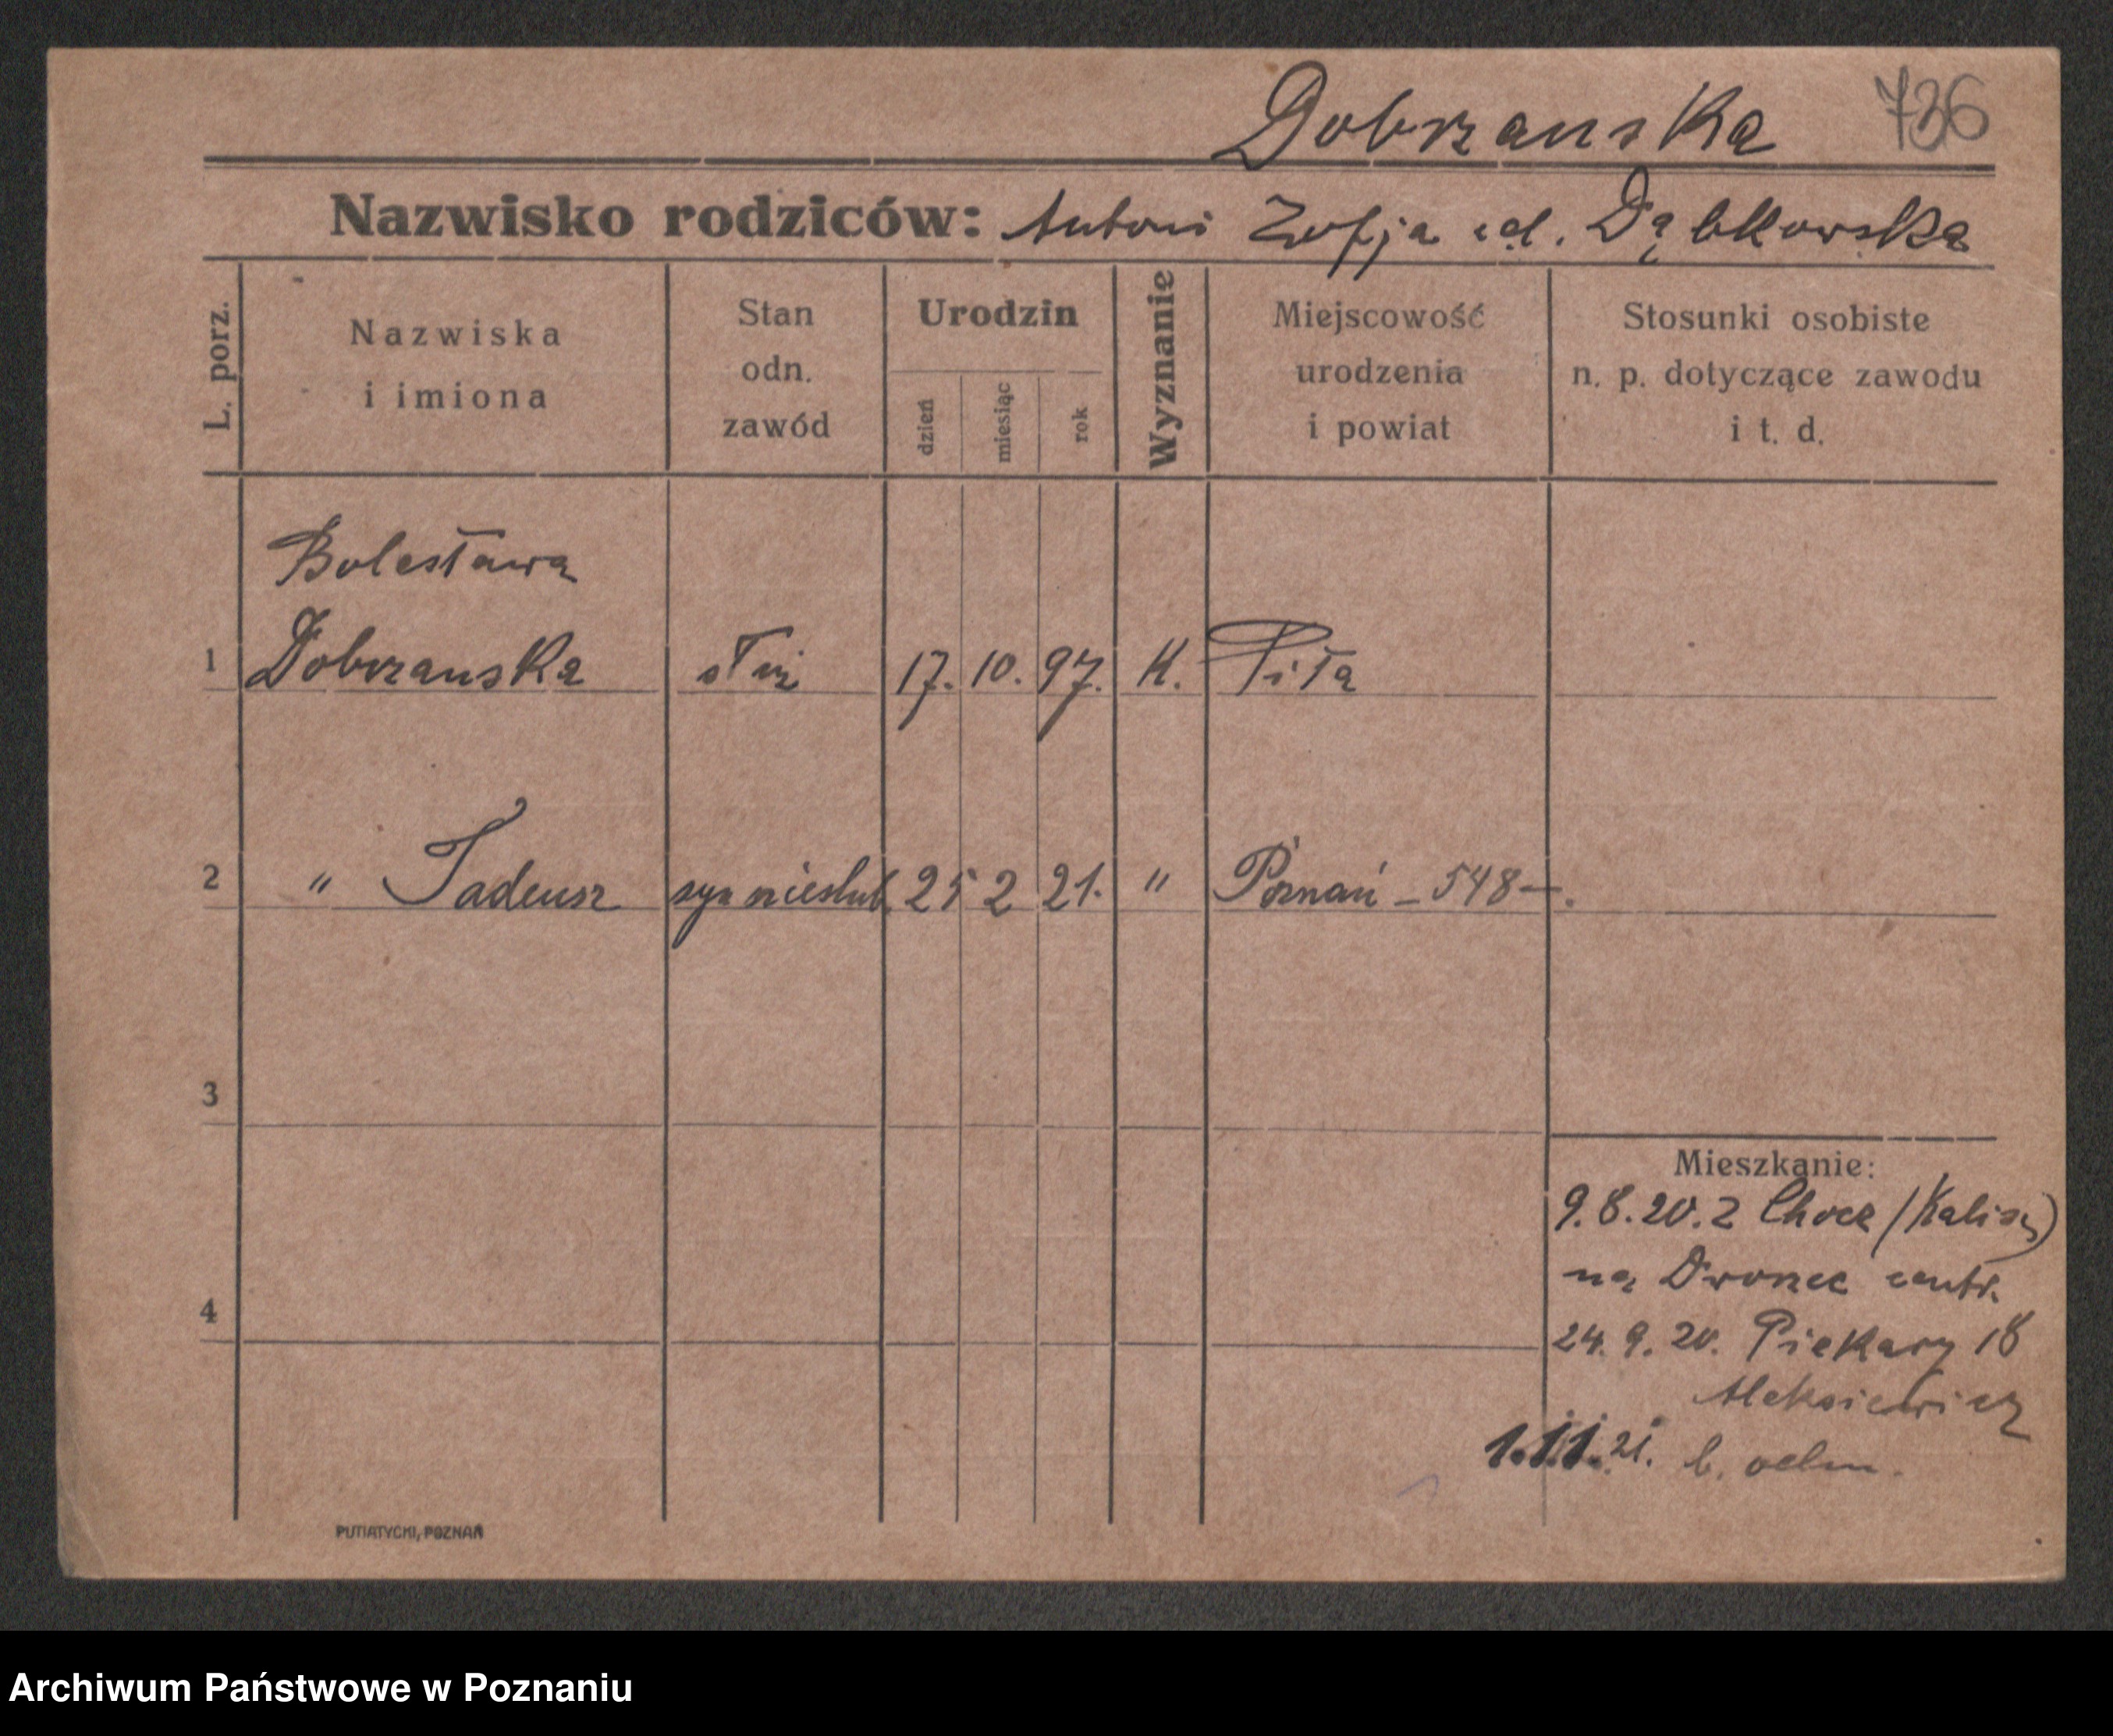 Dobrzanska 736
Nazwisko rodziców: Antoni Zofja Dąbkowska
L. porz.
Nazwiska i imiona
Stan odn. zawód
Urodzin
dzień
miesiąc
rok
Wyznanie
Miejscowość urodzenia i powiat
Stosunki osobiste n. p. dotyczące zawodu i t. d.
Bolesława
1 Dobrzanska służ 17. 10. 97. K. Piła
2 " Tadeusz syn nieslub. 25 2 21. " Poznań - 548 -.
3
4
Mieszkanie:
9.8.20. z Chocz (Kalisz)
na Dworzec centr.
24.9.20. Piekary 18
Aleksiewicz
1.11.21. b. odm.
PUTIATYCKI, POZNAŃ
Archiwum Państwowe w Poznaniu